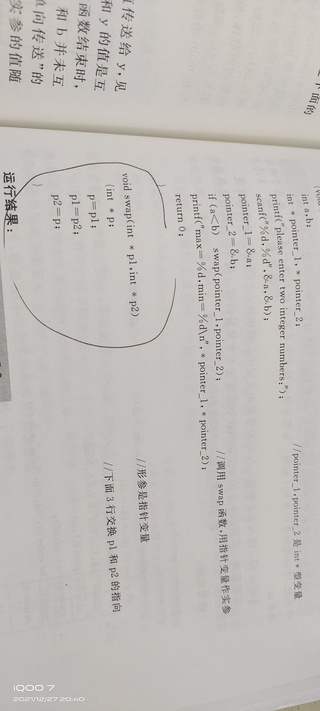 下面的
传送给 y,见
和 y 的值是互
函数结束时,
和 b 并未互
向传送”的
实参的值随
int a,b;
int * pointer_1, * pointer_2; //pointer_1,pointer_2 是 int * 型变量
printf("please enter two integer numbers:");
scanf("%d,%d",&a,&b);
pointer_1=&a;
pointer_2=&b;
if (a<b) swap(pointer_1,pointer_2); //调用 swap 函数,用指针变量作实参
printf("max=%d,min=%d\n", * pointer_1, * pointer_2);
return 0;
}
void swap(int * p1,int * p2) //形参是指针变量
{int * p;
p=p1; //下面 3 行交换 p1 和 p2 的指向
p1=p2;
p2=p;
}
运行结果:
iQOO 7
2021/12/27 20:40